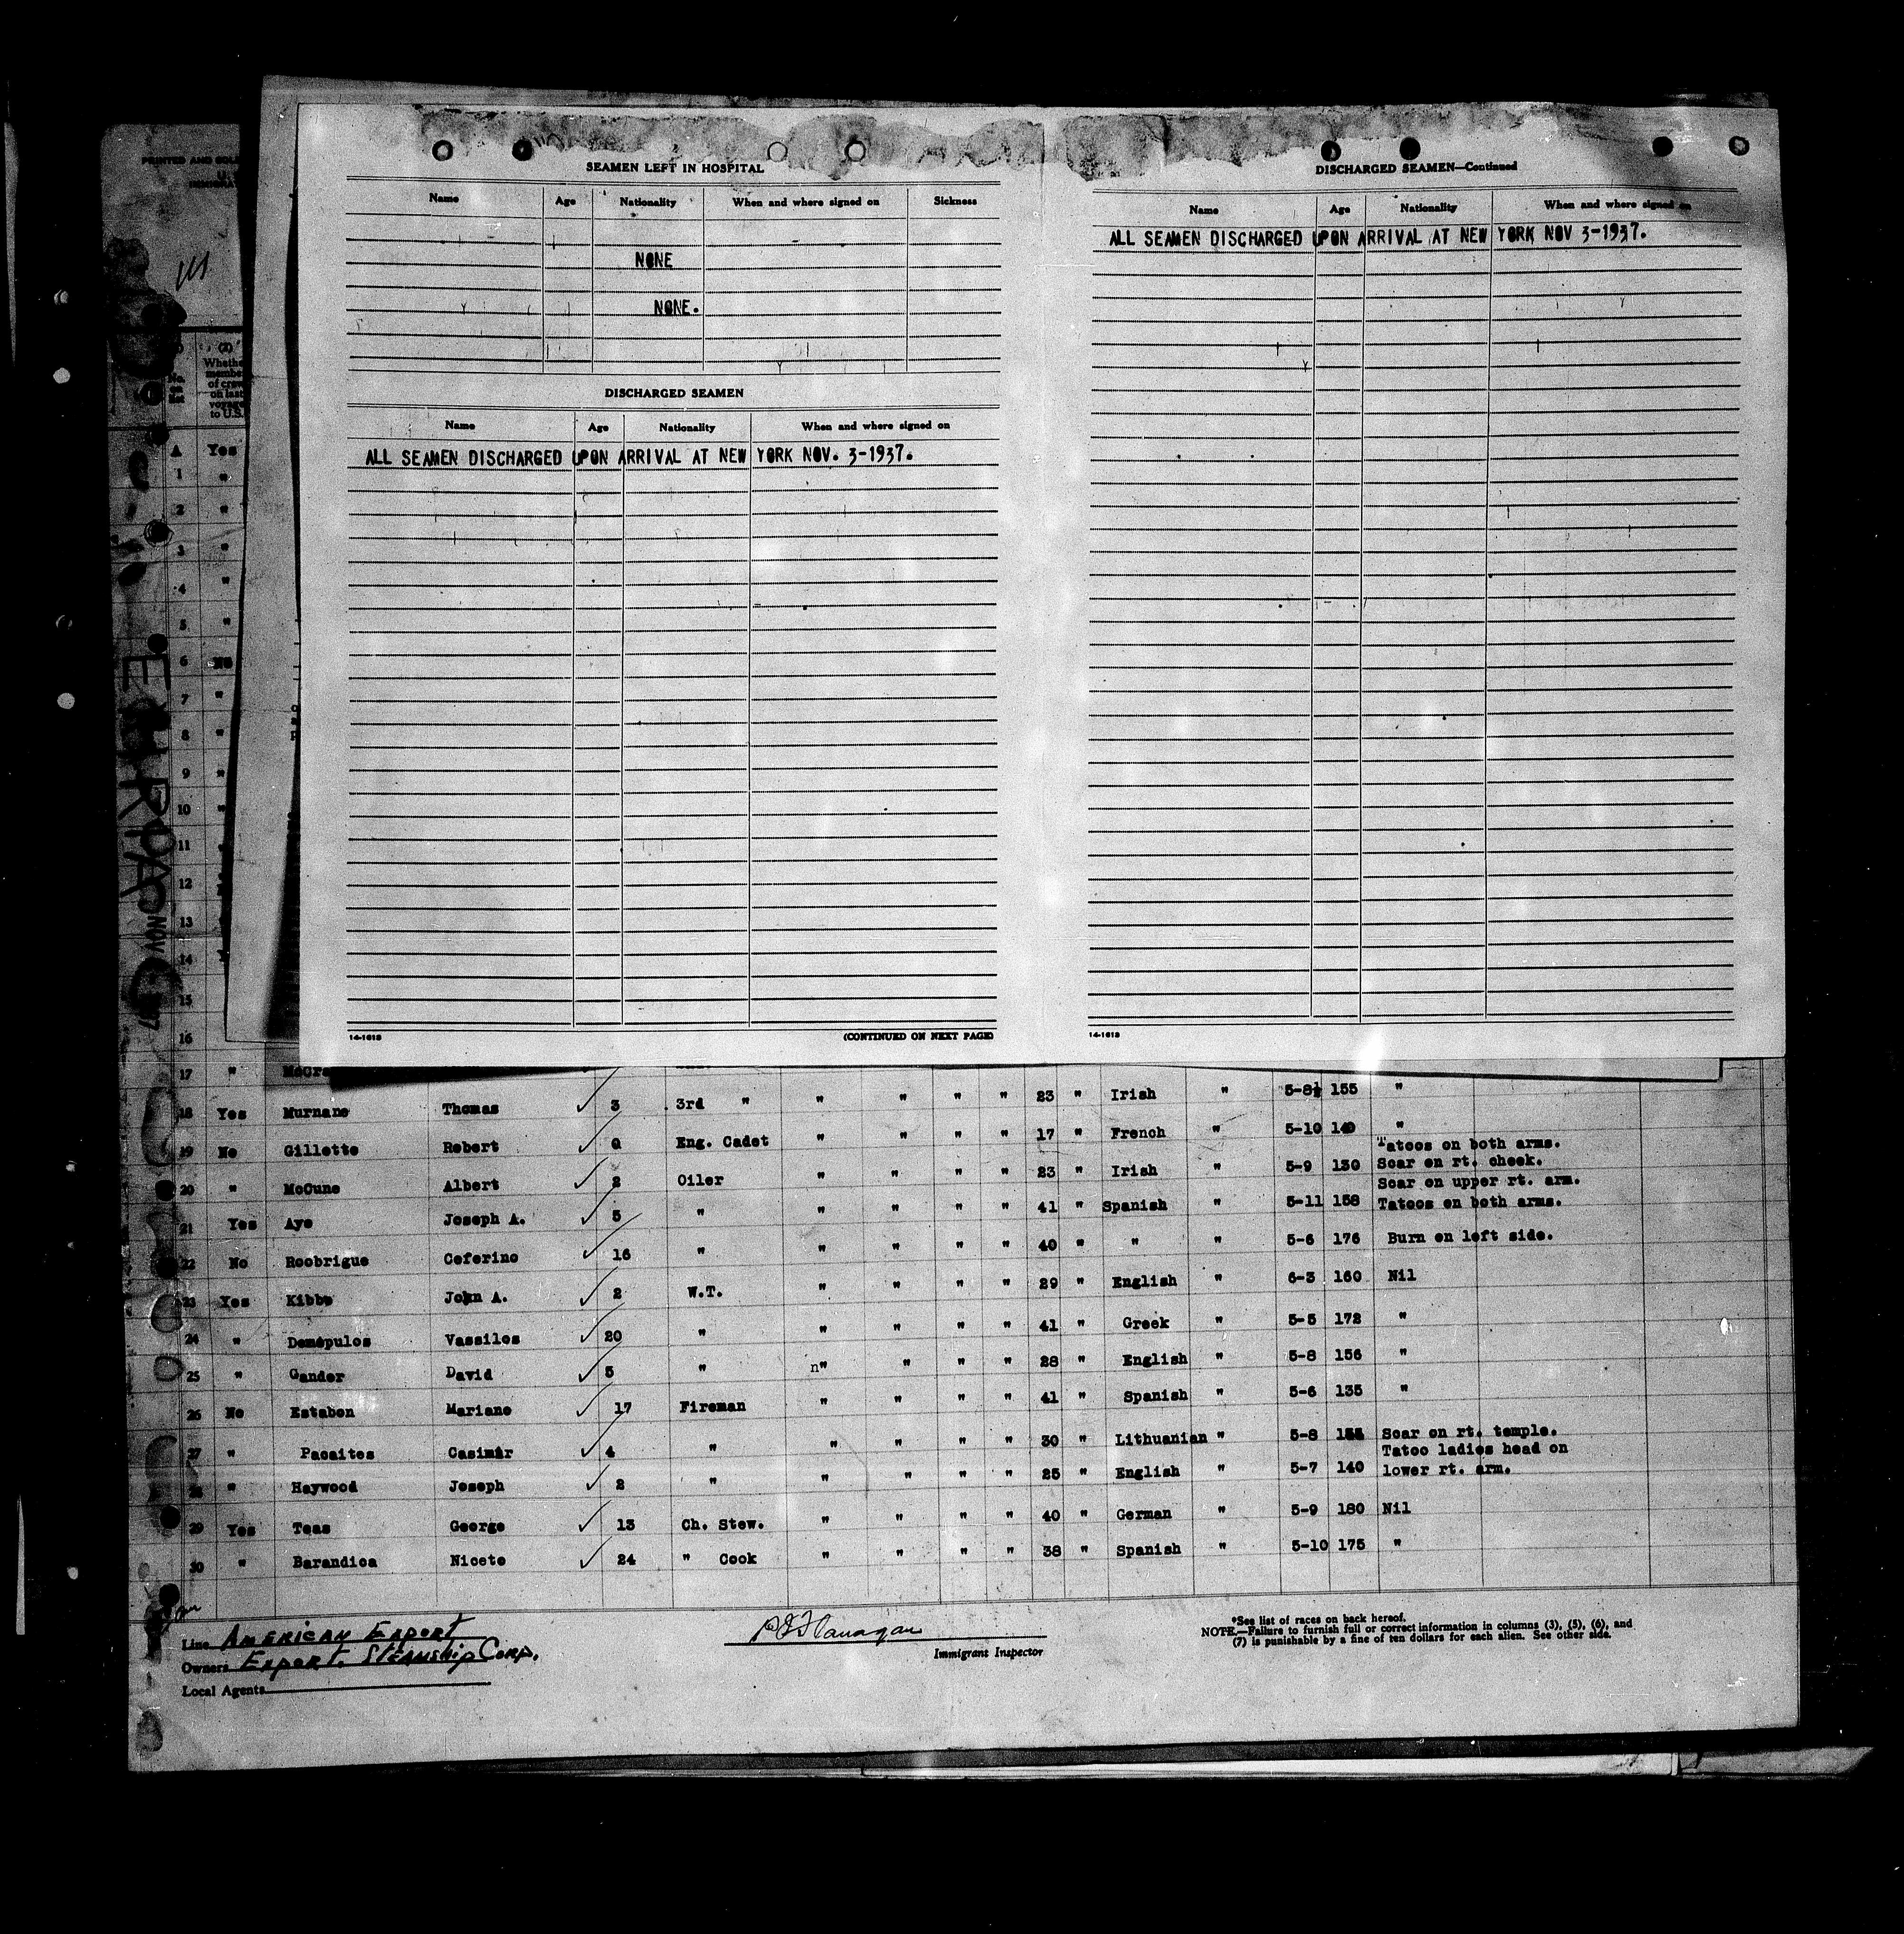 SEAMEN LEFT IN HOSPITAL
Name Age Nationality When and where signed on Sickness
NONE
NONE.
DISCHARGED SEAMEN
Name Age Nationality When and where signed on
ALL SEAMEN DISCHARGED UPON ARRIVAL AT NEW YORK NOV. 3-1937.
14-1613 (CONTINUED ON NEXT PAGE)
DISCHARGED SEAMEN—Continued
Name Age Nationality When and where signed on
ALL SEAMEN DISCHARGED UPON ARRIVAL AT NEW YORK NOV 3-1937.
14-1613
PRINTED AND
(2)
Whether
member
of crew
on last
voyage
to U.S.
Yes
1 "
2 "
3 "
4 "
5 "
6
7 "
8 "
9 "
10 "
11
12
13
14
15
16
17 "
18 Yes Murnane Thomas 3 3rd " " " " " 23 " Irish " 5-8½ 155 "
19 No Gillette Robert 0 Eng. Cadet " " " " 17 " French " 5-10 140 "
20 " McCune Albert 2 Oiler " " " " 23 " Irish " 5-9 130 Tatoos on both arms.
Scar on rt. cheek.
Scar on upper rt. arm.
21 Yes Aye Joseph A. 5 " " " " " 41 " Spanish " 5-11 158 Tatoos on both arms.
22 No Roobrigue Ceferino 16 " " " " " 40 " " " 5-6 176 Burn on left side.
23 Yes Kibbe John A. 2 W.T. " " " " 29 " English " 6-3 160 Nil
24 " Demopulos Vassilos 20 " " " " " 41 " Greek " 5-5 172 "
25 " Gander David 5 " n" " " " 28 " English " 5-8 156 "
26 No Estaben Mariano 17 Fireman " " " " 41 " Spanish " 5-6 135 "
27 " Pacaites Casimir 4 " " " " " 30 " Lithuanian " 5-8 Scar on rt. temple.
28 " Haywood Joseph 2 " " " " " 25 " English " 5-7 140 Tatoo ladies head on
lower rt. arm.
29 Yes Teas George 13 Ch. Stew. " " " " 40 " German " 5-9 180 Nil
30 " Barandica Nicete 24 " Cook " " " " 38 " Spanish " 5-10 175 "
Line American Export
Owners Export. Steamship Corp.
Local Agents
Flanagan
Immigrant Inspector
*See list of races on back hereof.
NOTE.—Failure to furnish full or correct information in columns (3), (5), (6), and
(7) is punishable by a fine of ten dollars for each alien. See other side.